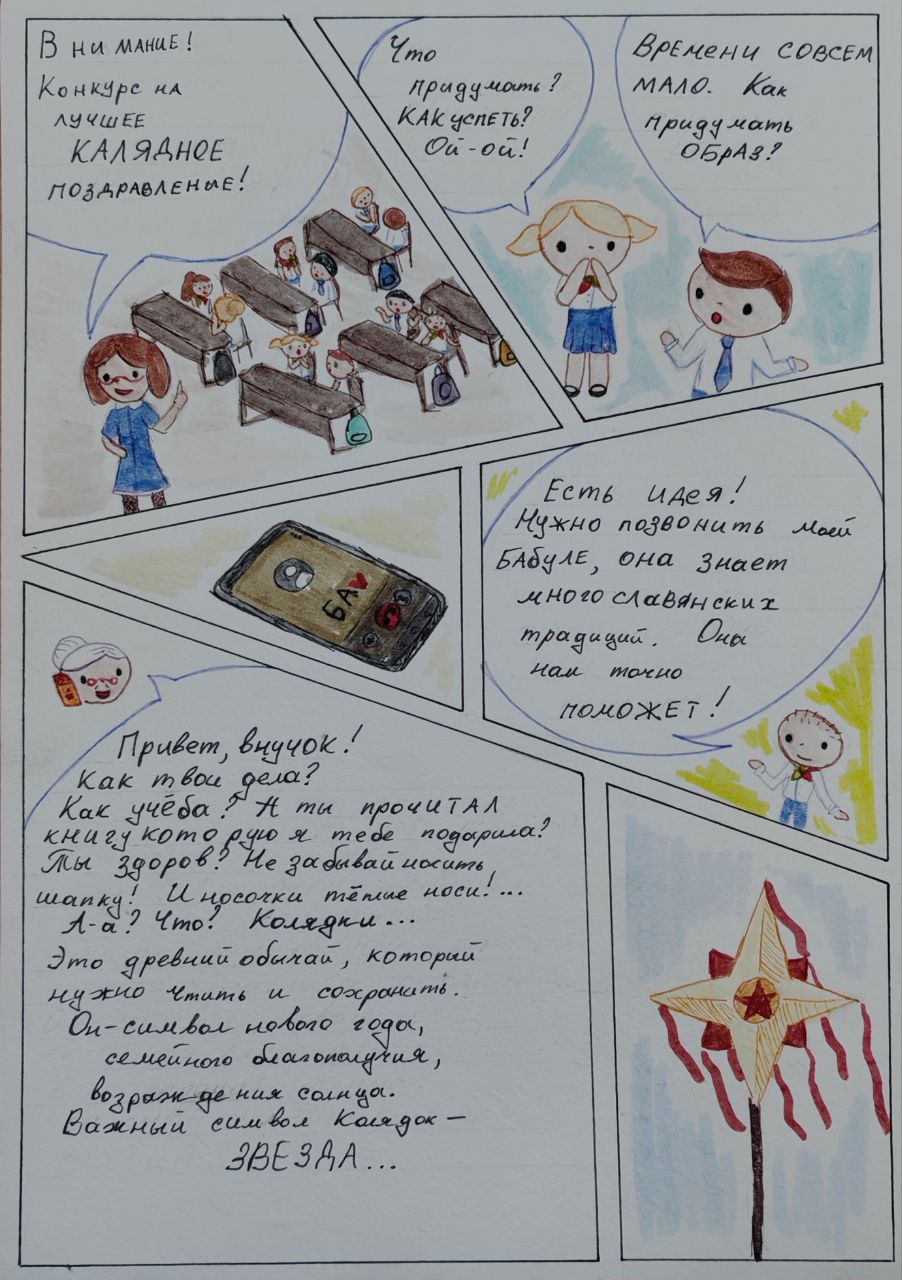 Внимание!
Конкурс на
лучшее
КАЛЯДНОЕ
поздравление!
Что
придумать?
Как успеть?
Ой-ой!
Времени совсем
мало. Как
придумать
образ?
Есть идея!
Нужно позвонить моей
бабуле, она знает
много славянских
традиций. Она
нам точно
поможет!
БА
Привет, внучок!
Как твои дела?
Как учёба? А ты прочитал
книгу которую я тебе подарила?
Ты здоров? Не забывай носить
шапку! И носочки тёплые носи!...
А-а? Что? Колядки...
Это древний обычай, который
нужно чтить и сохранить.
Он-символ нового года,
семейного благополучия,
возраждения солнца.
Важный символ Колядок –
ЗВЕЗДА...